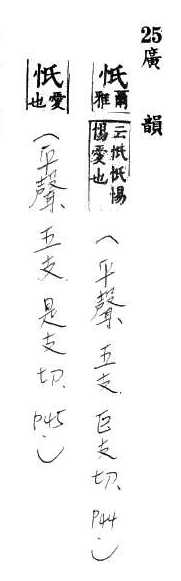 25廣韻
忯爾雅云忯忯惕惕愛也（平聲、五支、巨支切、P44。）
忯愛也（平聲、五支、是支切、P45。）